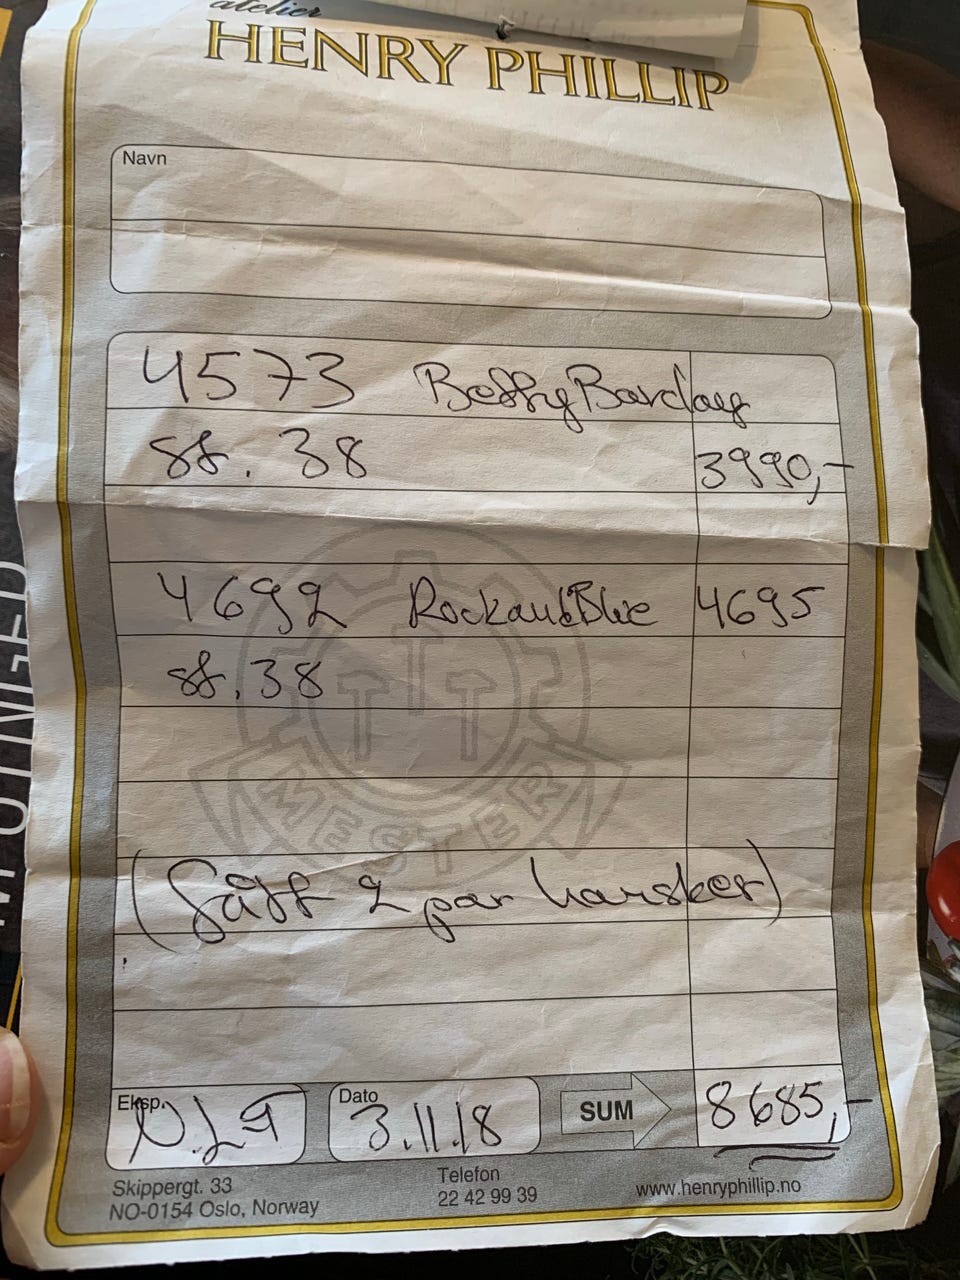 atelier
HENRY PHILLIP
Navn
4573 Betty Barclay
st. 38 3990,-
4692 RockandBlue 4695
st. 38
MESTER
(Gått 2 par hansker)
Eksp. Dato 3.11.18 SUM 8685,-
Skippergt. 33
NO-0154 Oslo, Norway
Telefon
22 42 99 39
www.henryphillip.no